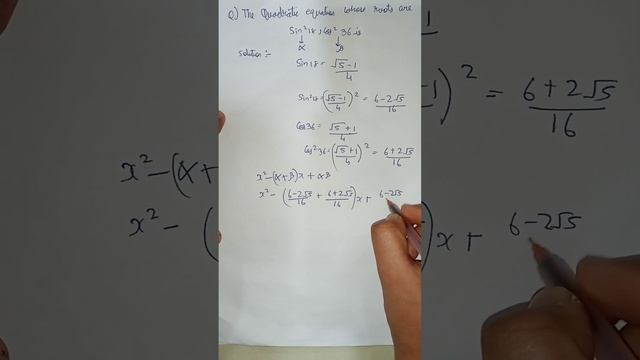 Q) The Quadratic equation whose roots are
Sin²18, Cos²36 is
↓ ↓
α β
Solution :-
Sin18 = √5-1/4
Sin²18 = (√5-1/4)² = 6-2√5/16
Cos36 = √5+1/4
Cos²36 = (√5+1/4)² = 6+2√5/16
x² - (α+β)x + αβ
x² - (6-2√5/16 + 6+2√5/16)x + 6-2√5